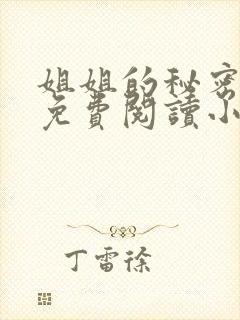 姐姐的秘密
免費閱讀小
丁雷徐